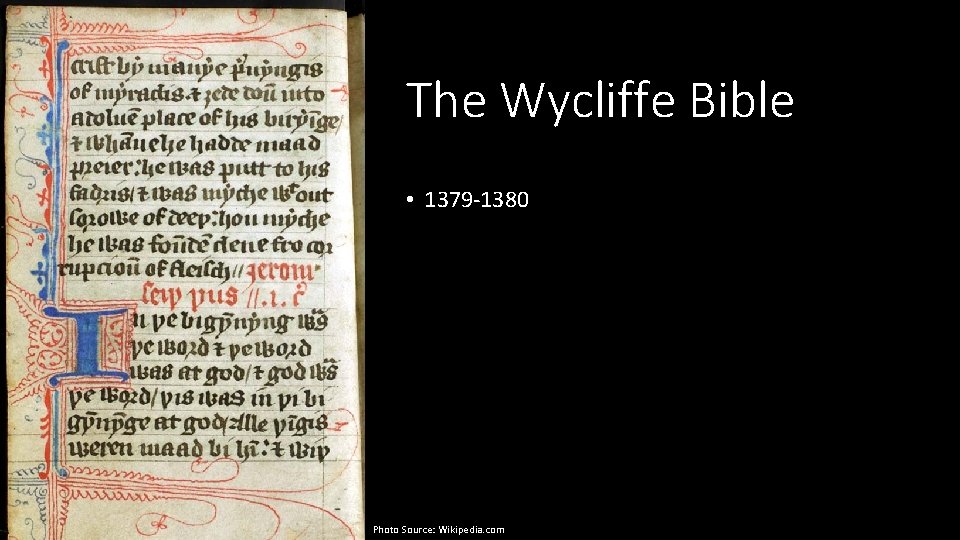 crist bi manye p̄uyngis
of myraclis ⁊ ȝede doū into
a doluē place of his biryīge/
⁊ whāne he hadde maad
preier: he was putt to his
fadris/ ⁊ was myche wᵗout
sorowe of deeþ: hou myche
he was foūdē clene fro cor
rupcioū of fleisch// Jerom
seiþ þus //.1. c̄
In þe bigynnyng was
þe word ⁊ þe word
was at god/ ⁊ god was
þe word/ þis was in þi bi
gȳnȳge at god/ alle þīgis
weren maad bi hī: ⁊ wiþ
The Wycliffe Bible
• 1379-1380
Photo Source: Wikipedia.com